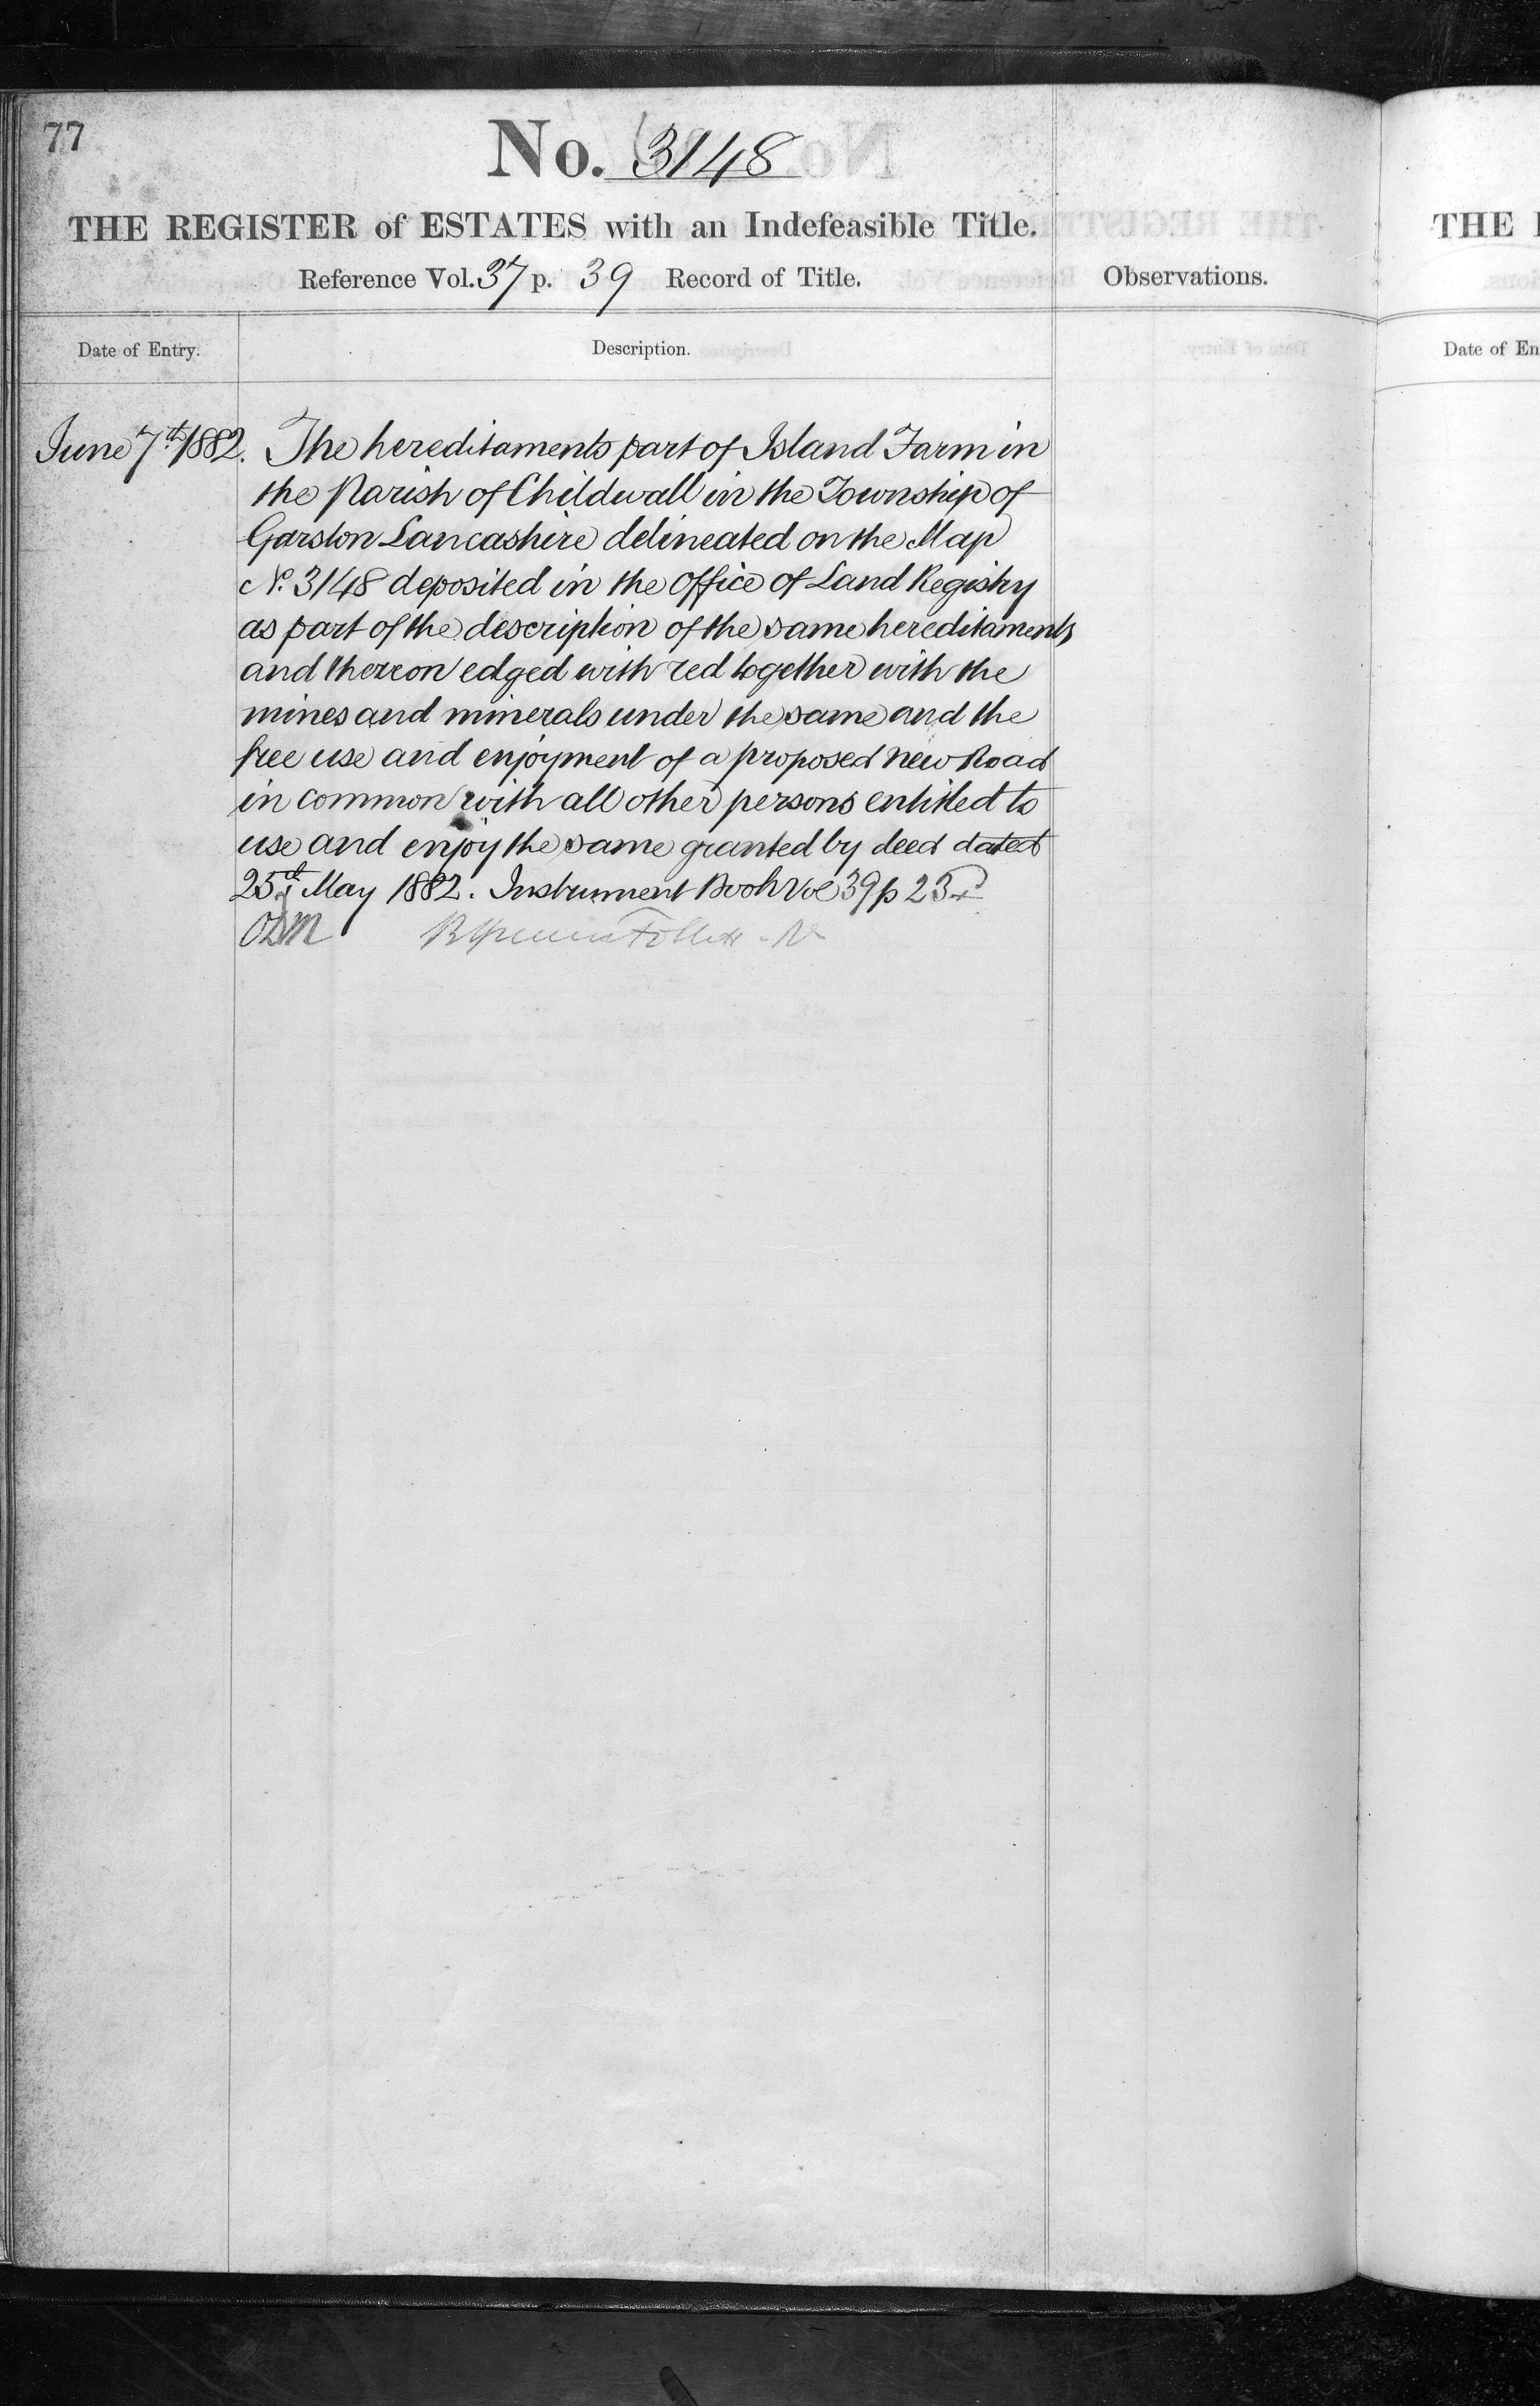 77
No. 3148
THE REGISTER of ESTATES with an Indefeasible Title.
Reference Vol. 37 p. 39 Record of Title.
Observations.
Date of Entry.
Description.
June 7th 1882.
The hereditaments part of Island Farm in
the Parish of Childwall in the Township of
Garston Lancashire delineated on the Map
No. 3148 deposited in the office of Land Registry
as part of the description of the same hereditaments
and thereon edged with red together with the
mines and minerals under the same and the
free use and enjoyment of a proposed New Road
in common with all other persons entitled to
use and enjoy the same granted by deed dated
25th May 1882. Instrument Book Vol 39 p 23
Follett
THE
Date of En